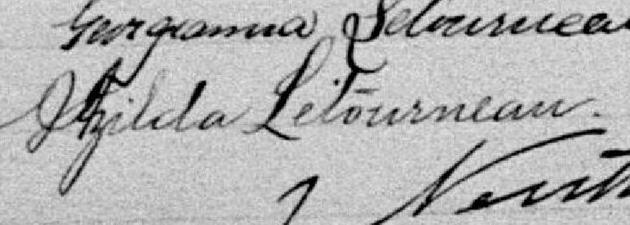 Georgianna Letourneau
Exilda Letourneau.